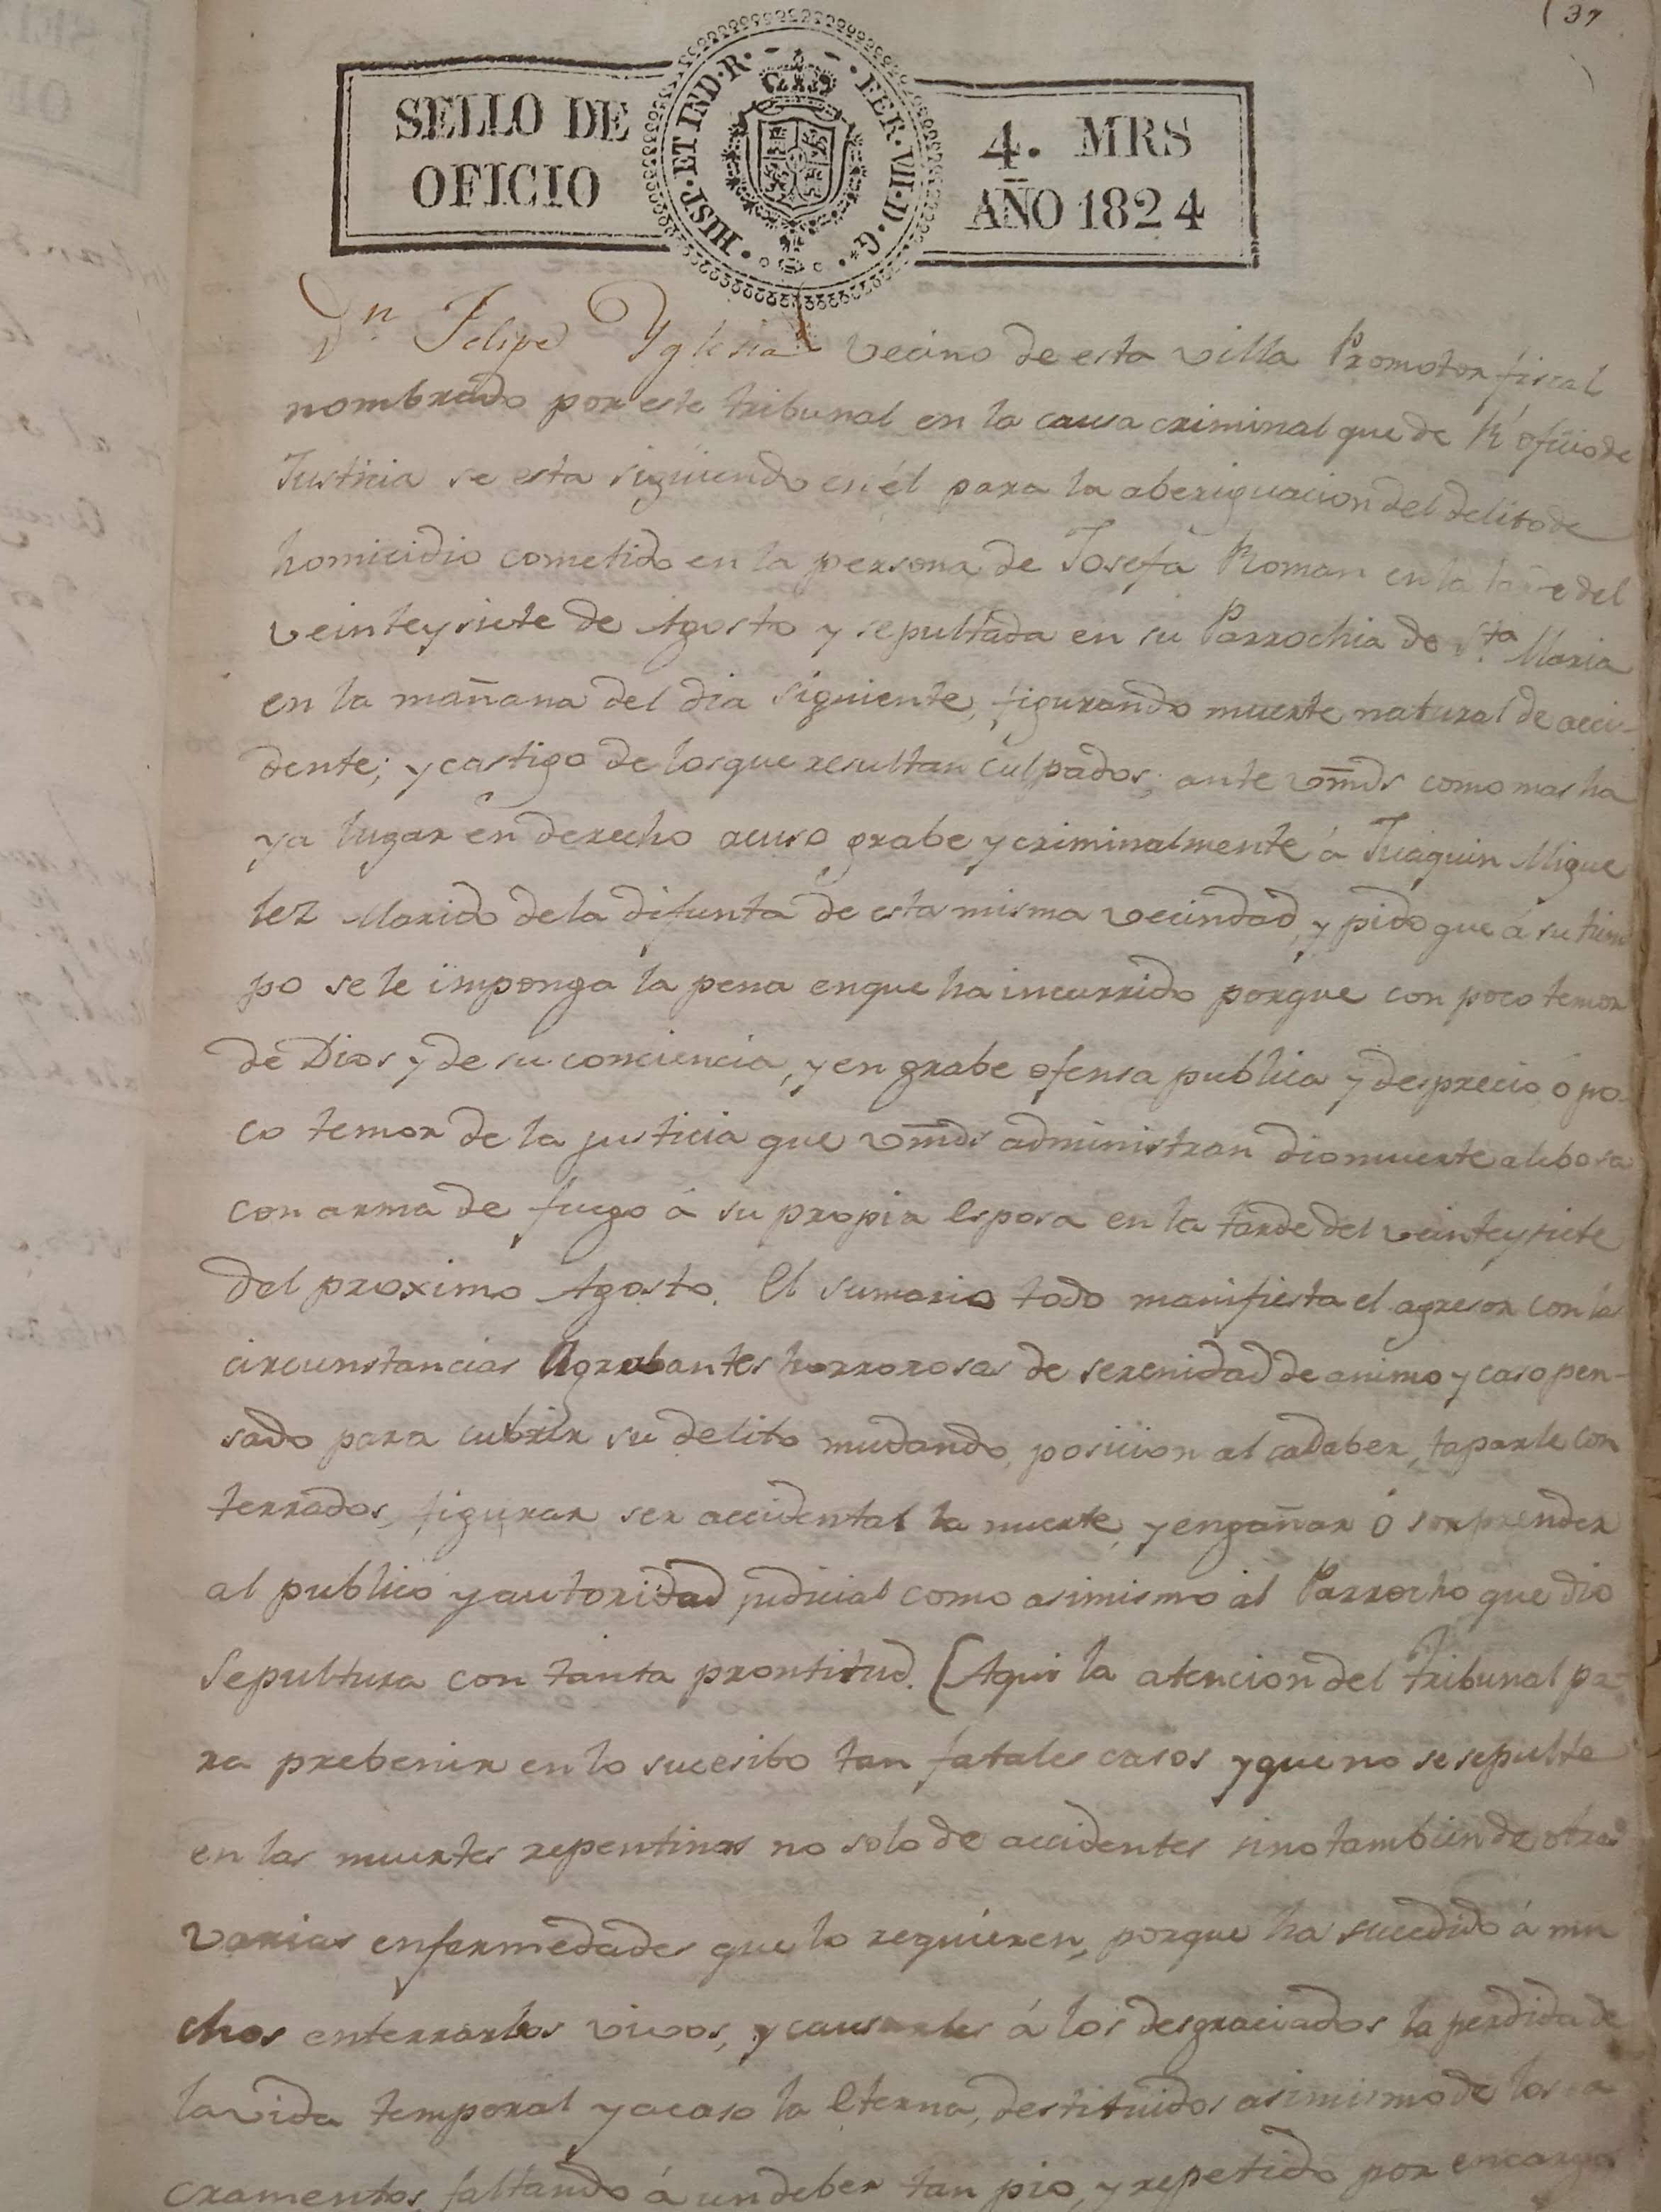 (37
SELLO DE
OFICIO
HISP. ET IND. R. FER. VII. D. G.
4. MRS
AÑO 1824
Dn. Felipe Yglesias vecino de esta villa Promotor fiscal
nombrado por este tribunal en la causa criminal que de Rl. oficio de
Justicia se esta siguiendo en él para la aberiguacion del delito de
homicidio cometido en la persona de Josefa Roman en la tarde del
veinte y siete de Agosto y sepultada en su Parrochia de Sta. Maria
en la mañana del dia siguiente, figurando muerte natural de acci-
dente; y castigo de los que resultan culpados; ante vmds como mas ha
ya lugar en derecho acuso grabe y criminalmente á Juaquin Migue
lez Marido de la difunta de esta misma vecindad, y pido que á su tiem
po se le imponga la pena en que ha incurrido porque con poco temor
de Dios y de su conciencia, y en grabe ofensa publica y desprecio ó po-
co temor de la justicia que vmds administran dio muerte alebosa
con arma de fuego á su propia Esposa en la tarde del veinte y siete
del proximo Agosto. El sumario todo manifiesta el agresor con las
circunstancias Agrabantes horrorosas de serenidad de animo y caso pen-
sado para cubrir su delito mudando, posicion al cadaber, taparle con
terrados, figurar ser accidental la muerte, y engañar ó sorprender
al publico y autoridad judicial como asimismo al Parrocho que dio
Sepultura con tanta prontitud. (Aqui la atencion del tribunal pa-
ra prebenir en lo sucesibo tan fatales casos y que no se sepulte
en las muertes repentinas no solo de accidentes sino tambien de otras
varias enfermedades que lo requieren, porque ha sucedido á mu
chos enterrarlos vivos, y causarles á los desgraciados la perdida de
la vida temporal y acaso la Eterna, destituidos asimismo de los sa
cramentos, faltando á un deber tan pio, y repetido por encargo